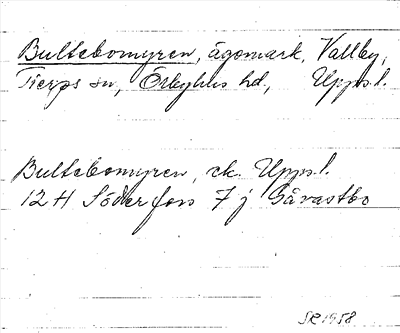 Bultebomyren, ägomark, Vallby,
Tierps sn, Örbyhus hd, Upps.l.
Bultebomyren, ek. Upps.l.
12 H Söderfors 7 j Gåvastbo
SR 1958